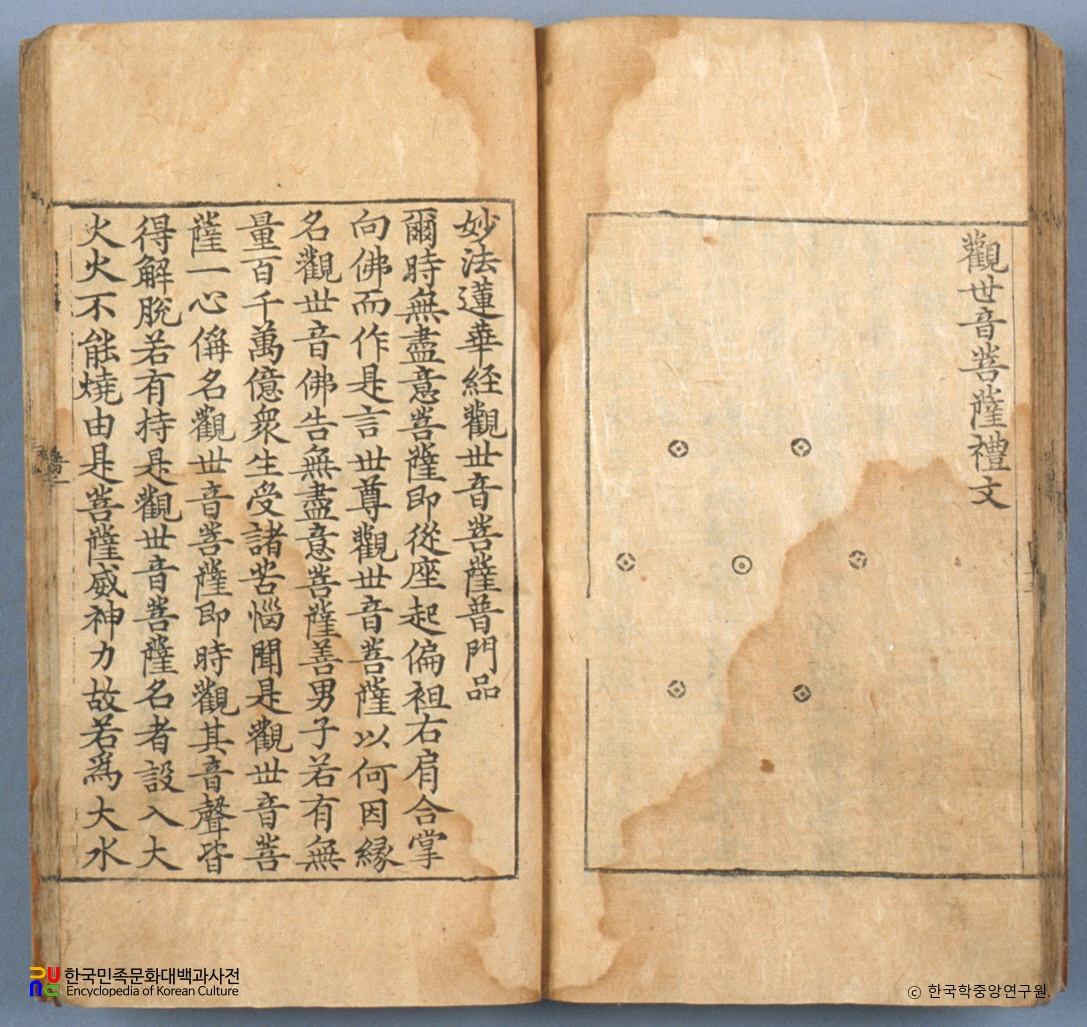 觀世音菩薩禮文
妙法蓮華経觀世音菩薩普門品
爾時無盡意菩薩即從座起偏袒右肩合掌
向佛而作是言世尊觀世音菩薩以何因縁
名觀世音佛告無盡意菩薩善男子若有無
量百千萬億衆生受諸苦惱聞是觀世音菩
薩一心稱名觀世音菩薩即時觀其音聲皆
得解脫若有持是觀世音菩薩名者設入大
火火不能燒由是菩薩威神力故若爲大水
한국민족문화대백과사전
Encyclopedia of Korean Culture
ⓒ 한국학중앙연구원.